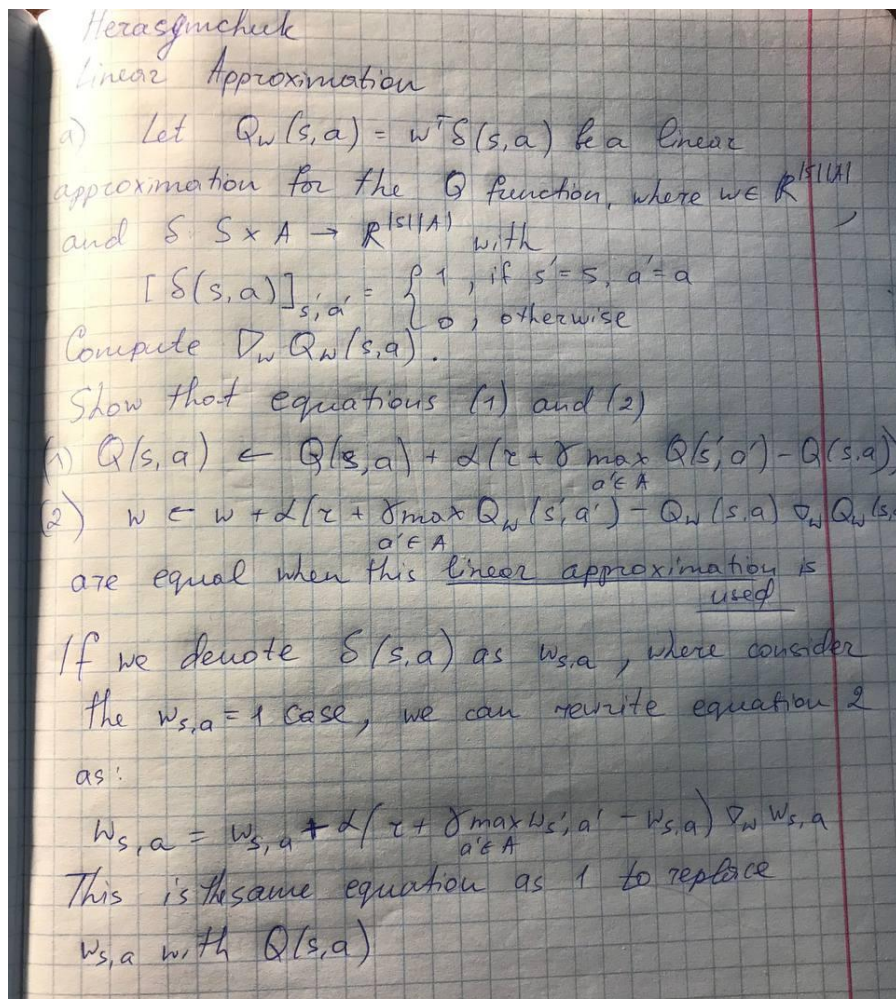 Herasymchuk
Linear Approximation
a) Let Q_w(s,a) = w^T δ(s,a) be a linear
approximation for the Q function, where w ∈ R^{|S||A|},
and δ: S × A → R^{|S||A|} with
[δ(s,a)]_{s',a'} = { 1, if s' = s, a' = a
0, otherwise
Compute ∇_w Q_w(s,a).
Show that equations (1) and (2)
(1) Q(s,a) ← Q(s,a) + α(r + γ max_{a'∈A} Q(s',a') - Q(s,a))
(2) w ← w + α(r + γ max_{a'∈A} Q_w(s',a') - Q_w(s,a) ∇_w Q_w(s,
are equal when this linear approximation is
used
If we denote δ(s,a) as w_{s,a}, where consider
the w_{s,a} = 1 case, we can rewrite equation 2
as:
w_{s,a} = w_{s,a} + α(r + γ max_{a'∈A} w_{s',a'} - w_{s,a}) ∇_w w_{s,a}
This is the same equation as 1 to replace
w_{s,a} with Q(s,a)